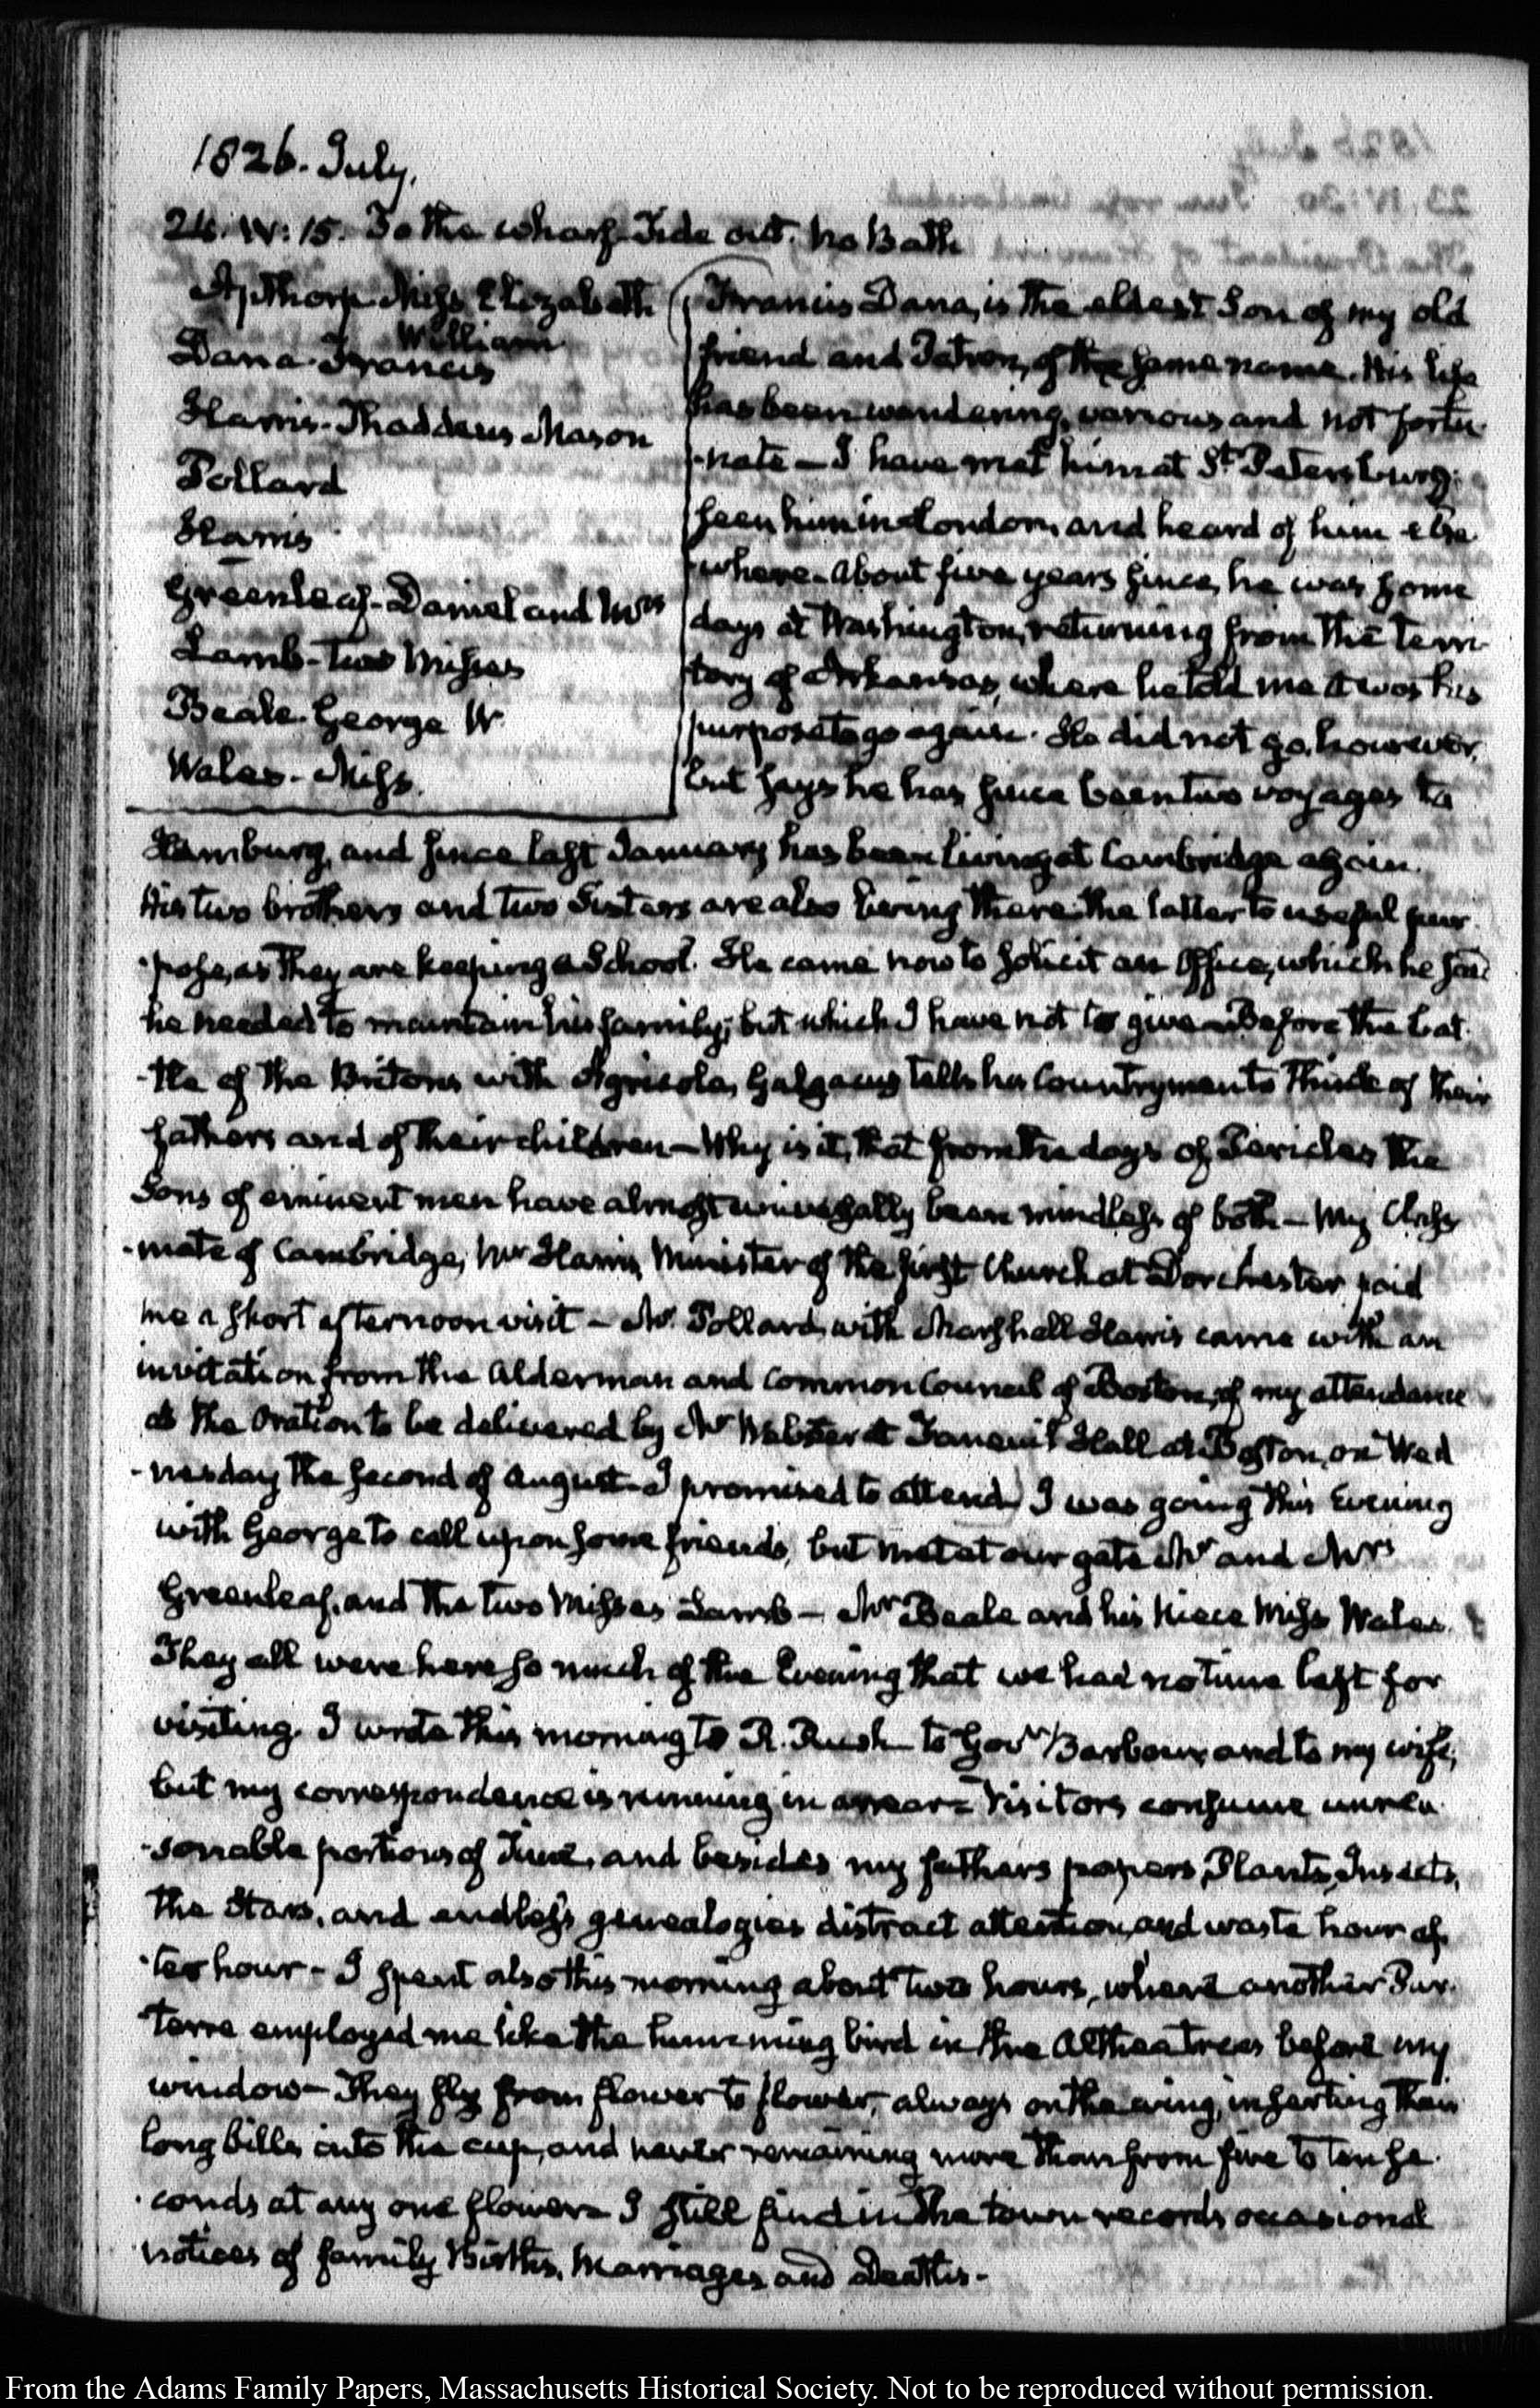 1826. July.
24. IV: 15. To the wharf. Tide out. No Bath
Apthorp Miss Elizabeth
Dana. Francis William
Harris. Thaddeus Mason
Pollard
Harris
Greenleaf. Daniel and Mrs
Lamb. two Misses
Beale. George W.
Wales. Miss.
Francis Dana, is the eldest Son of my old
friend and Patron, of the same name. His life
has been wandering, various and not fortu-
-nate — I have met him at St. Petersburg.
seen him in London, and heard of him else
where. About five years since, he was some
days at Washington, returning from the terri-
tory of Arkansas, where he told me it was his
purpose to go again. He did not go, however,
but says he has since been two voyages to
Hamburg, and since last January has been living at Cambridge again.
His two brothers and two Sisters are also living there the latter to useful pur-
-pose, as they are keeping a School. He came now to solicit an Office, which he said
he needed to maintain his family; but which I have not to give — Before the bat-
-tle of the Britons with Agricola, Galgacus tells his Countrymen to think of their
fathers and of their children — Why is it, that from the days of Pericles the
Sons of eminent men have almost universally been mindless of both — My Class
-mate of Cambridge, Mr Harris, Minister of the first Church at Dorchester paid
me a short afternoon visit — Mr. Pollard, with Marshall Harris came with an
invitation from the Alderman and Common Council of Boston, of my attendance
at the Oration to be delivered by Mr Webster at Faneuil Hall at Boston, on Wed
-nesday the second of August — I promised to attend) I was going this Evening
with George to call upon some friends, but met at our gate Mr and Mrs
Greenleaf, and the two Misses Lamb — Mr Beale and his Niece Miss Wales.
They all were here so much of the Evening that we had no time left for
visiting. I wrote this morning to R. Rush to Govr Barbour, and to my wife,
but my correspondence is running in arrear — Visitors consume unrea-
-sonable portions of Time, and besides my fathers papers, Plants, Insects,
the Stars, and endless genealogies distract attention, and waste hour af-
-ter hour — I spent also this morning about two hours, where another Par-
terre employed me like the humming bird in the Althea trees before my
window — They fly from flower to flower, always on the wing, inserting their
long bills into the cup, and never remaining more than from five to ten se-
-conds at any one flower — I still find in the town records occasional
notices of family Births, Marriages and Deaths.
From the Adams Family Papers, Massachusetts Historical Society. Not to be reproduced without permission.